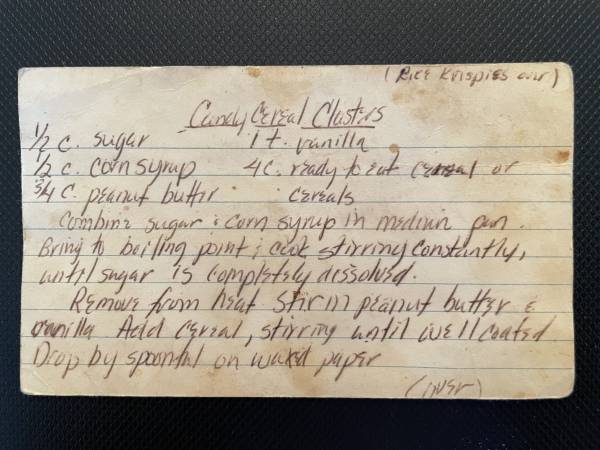 (Rice Krispies over)
Candy Cereal Clusters
1/2 c. sugar 1 t. vanilla
1/2 c. corn syrup 4 c. ready to eat cereal or
3/4 c. peanut butter cereals
Combine sugar & corn syrup in medium pan.
Bring to boiling point & cook stirring constantly,
until sugar is completely dissolved.
Remove from heat stir in peanut butter &
vanilla Add cereal, stirring until well coated
Drop by spoonful on waxed paper
(over)